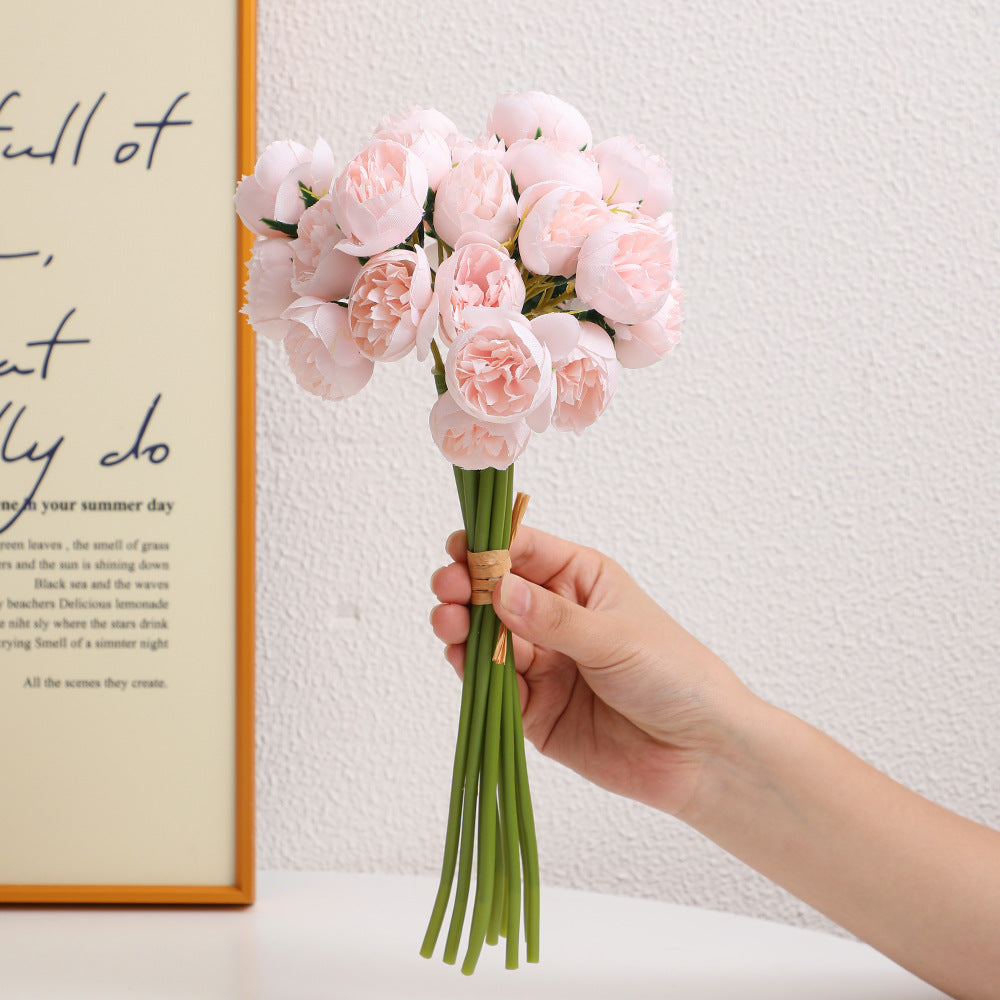 full of
at
lly do
ne in your summer day
reen leaves , the smell of grass
rs and the sun is shining down
Black sea and the waves
y beachers Delicious lemonade
e niht sly where the stars drink
rying Smell of a simnter night
All the scenes they create.